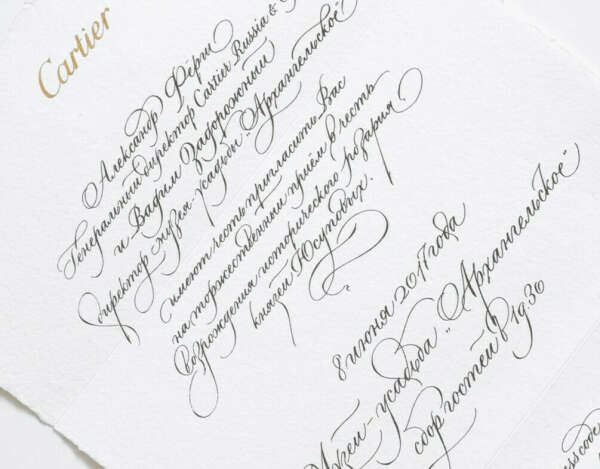 Cartier
Александр Фёрт
Генеральный директор Cartier Russia &
и Вадим Задорожный
директор музея-усадьбы „Архангельское“
имеют честь пригласить Вас
на торжественный приём в честь
возрождения исторического розария
князей Юсуповых.
8 июня 2017 года
Музей-усадьба „Архангельское“
сбор гостей в 19:30